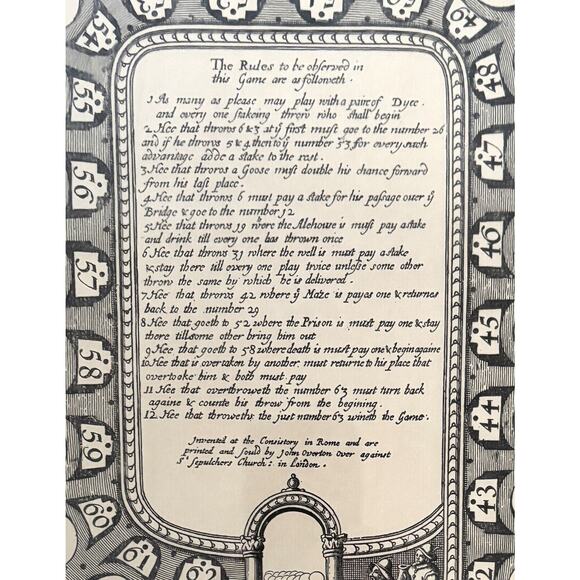 The Rules to be observed in
this Game are as followeth.
1 As many as please may play with a paire of Dyce.
and every one stakeing throw who shall begin
2. Hee that throws 6 & 3 at yͤ first must goe to the number 26
and if he throws 5 & 4 then to yͤ number 53 for every such
advantage adde a stake to the rest.
3. Hee that throws a Goose must double his chance forward
from his last place.
4. Hee that throws 6 must pay a stake for his passage over yͤ
Bridge & goe to the number 12
5. Hee that throws 19 where the Alehouse is must pay a stake
and drink till every one has thrown once
6. Hee that throws 31 where the well is must pay a stake
& stay there till every one play twice unlesse some other
throw the same by which he is delivered.
7. Hee that throws 42 where yͤ Maze is payes one & returnes
back to the number 29
8. Hee that goeth to 52 where the Prison is must pay one & stay
there till some other bring him out
9. Hee that goeth to 58 where death is must pay one & begin againe
10. Hee that is overtaken by another must returne to his place that
overtooke him & both must pay
11. Hee that overthroweth the number 63 must turn back
againe & counte his throw from the begining.
12. Hee that throweths the just number 63 wineth the Game.
Invented at the Consistory in Rome and are
printed and sould by John Overton over against
Sᵗ Sepulchers Church: in London.
54
55
56
57
58
59
60
61
62
53
49
48
47
46
45
44
43